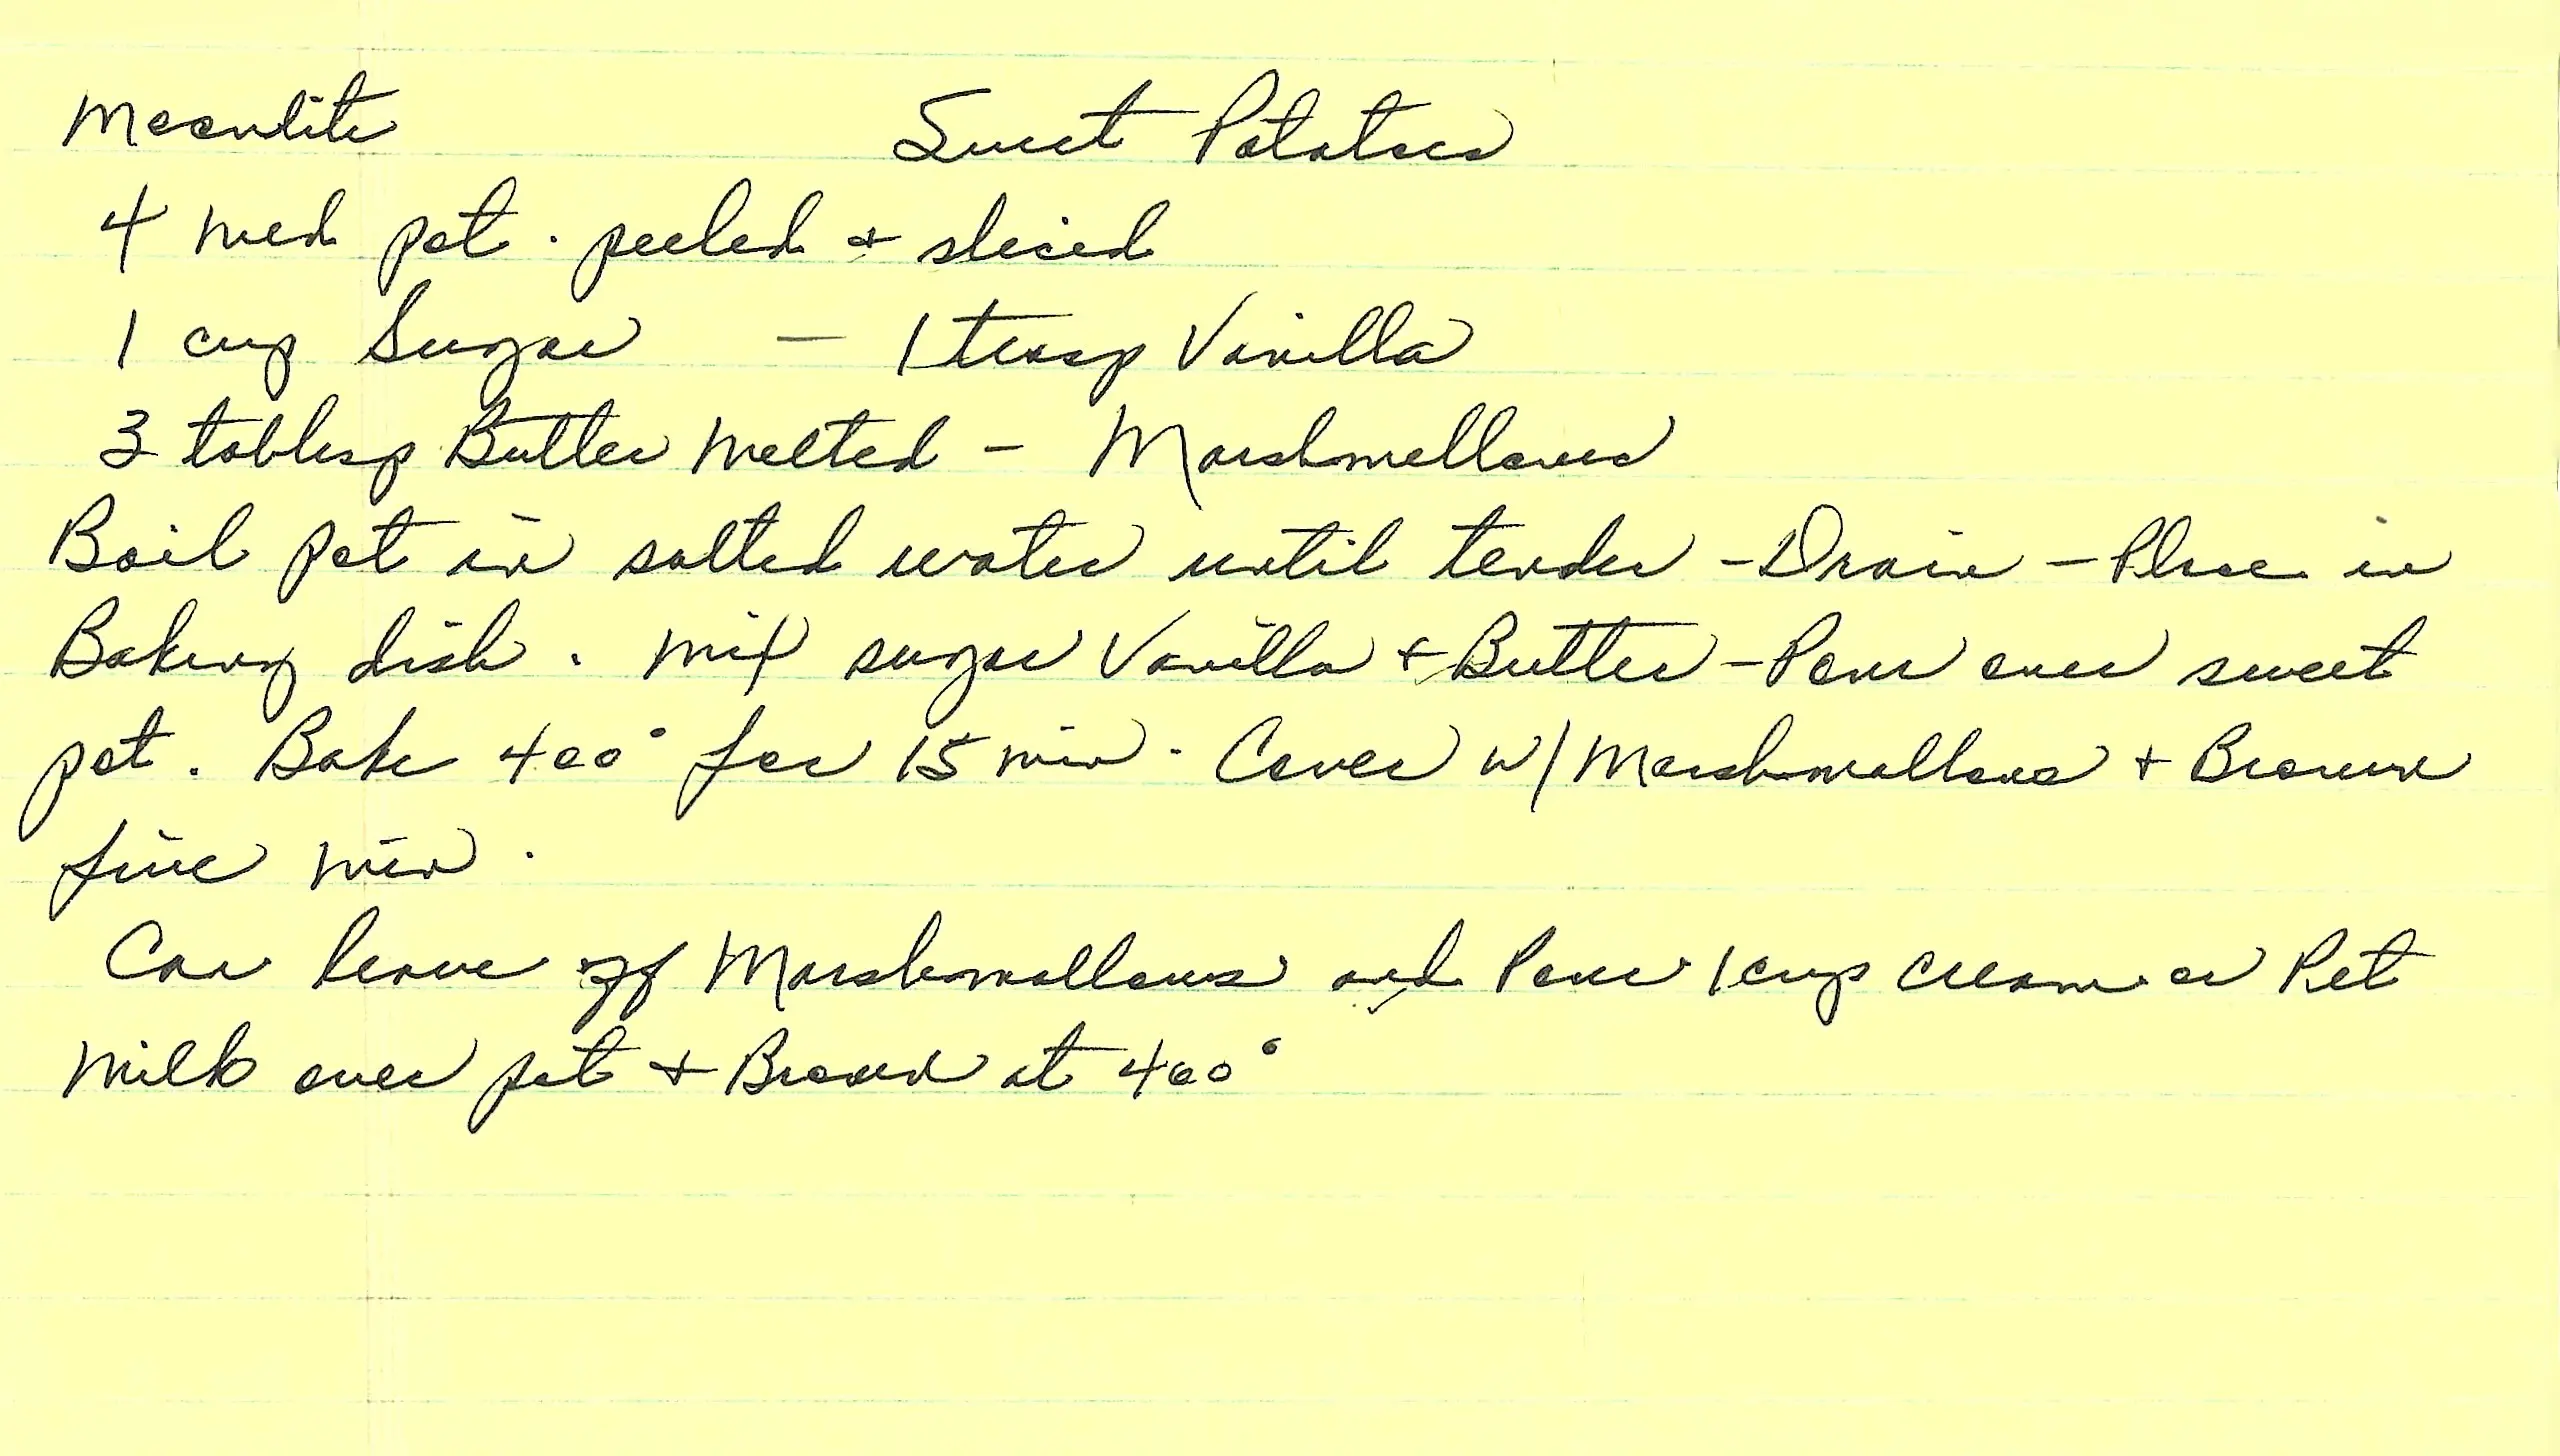 Sweet Potatoes
4 med pot. peeled + sliced
1 cup Sugar — 1 teasp Vanilla
3 tablesp Butter Melted - Marshmellows
Boil pot in salted water until tender - Drain - Place in
Baking dish. Mix sugar Vanilla + Butter - Pour over sweet
pot. Bake 400° for 15 min. Cover w/ Marshmallows + Brown
five min.
Can leave off Marshmallows and Pour 1 cup cream or Pet
Milk over pot + Brown at 400°